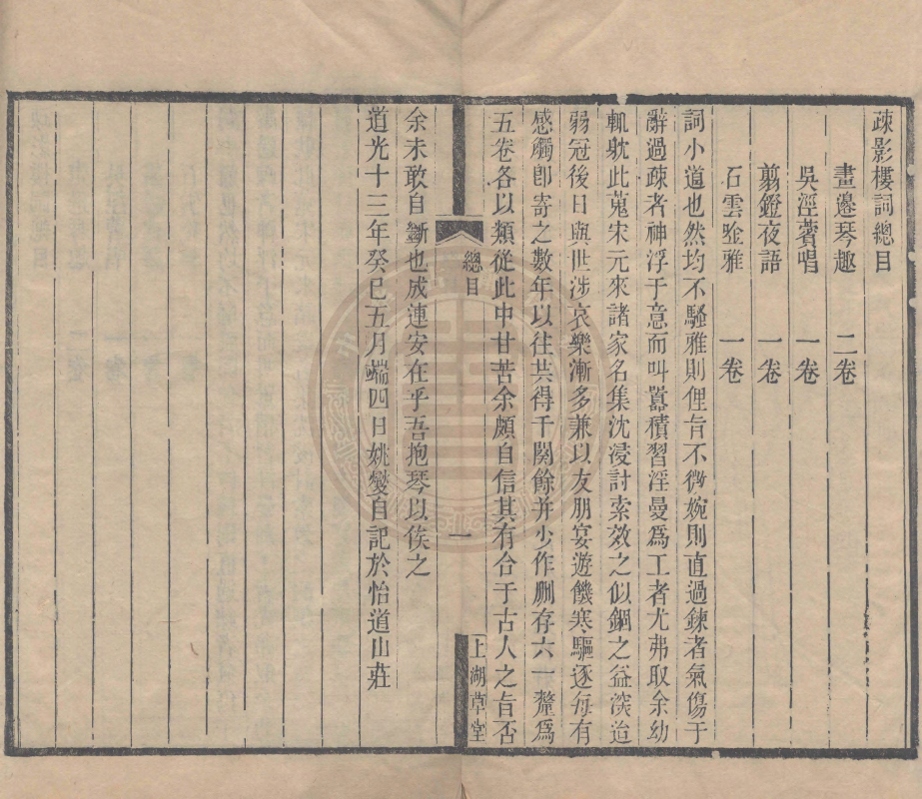 疎影樓詞總目
畫邊琴趣 二卷
吳涇蘋唱 一卷
翦鐙夜語 一卷
石雲唫雅 一卷
詞小道也然均不騷雅則俚旨不微婉則直過鍊者氣傷于
辭過疎者神浮于意而叫囂積習淫曼爲工者尤弗取余幼
輒躭此蒐宋元來諸家名集沈浸討索效之似錮之益深迨
弱冠後日與世涉哀樂漸多兼以友朋宴遊饑寒驅逐每有
感觸卽寄之數年以往共得千闋餘并少作刪存六一釐爲
五卷各以類從此中甘苦余頗自信其有合于古人之旨否
總目 一 上湖草堂
余未敢自斷也成連安在乎吾抱琴以俟之
道光十三年癸巳五月端四日姚燮自記於怡道山莊